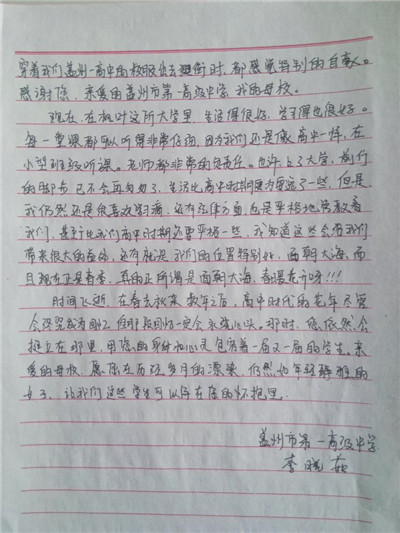 穿着我们盖州一高中的校服出去逛街时，都感觉特别的自豪。
感谢您，亲爱的盖州市第一高级中学，我的母校。
现在，在这所大学里，生活得很好，学得也很好。
每一堂课都可以听得非常仔细，因为我们还是像高中一样，在
小型班级听课。老师都非常的负责任。也许上了大学，前行
的脚步已不会再匆匆了，生活比高中时期更为宽远了一些，但是，
我仍然还是很喜欢。还有法律方面，也是严格地劳教着
我们，甚至比我们高中时期还要严格一些，我知道这些会给我们
带来很大的。还有就是我们的位置特别好，面朝大海，而
且现在正是春季，真的正所谓是面朝大海，春暖花开呀!!!
时间飞逝，在春去秋来数年之后，高中时代的老年
会，但那段回忆一定会永驻心头。那时，您依然会
挺立在那里，用您的身体和心灵包容着一届又一届的学生。亲
爱的母校，愿您在历经岁月的漂染，仍然如年轻静雅的
女子，让我们这些学生可以存在您的怀抱里。
盖州市第一高级中学
李晓